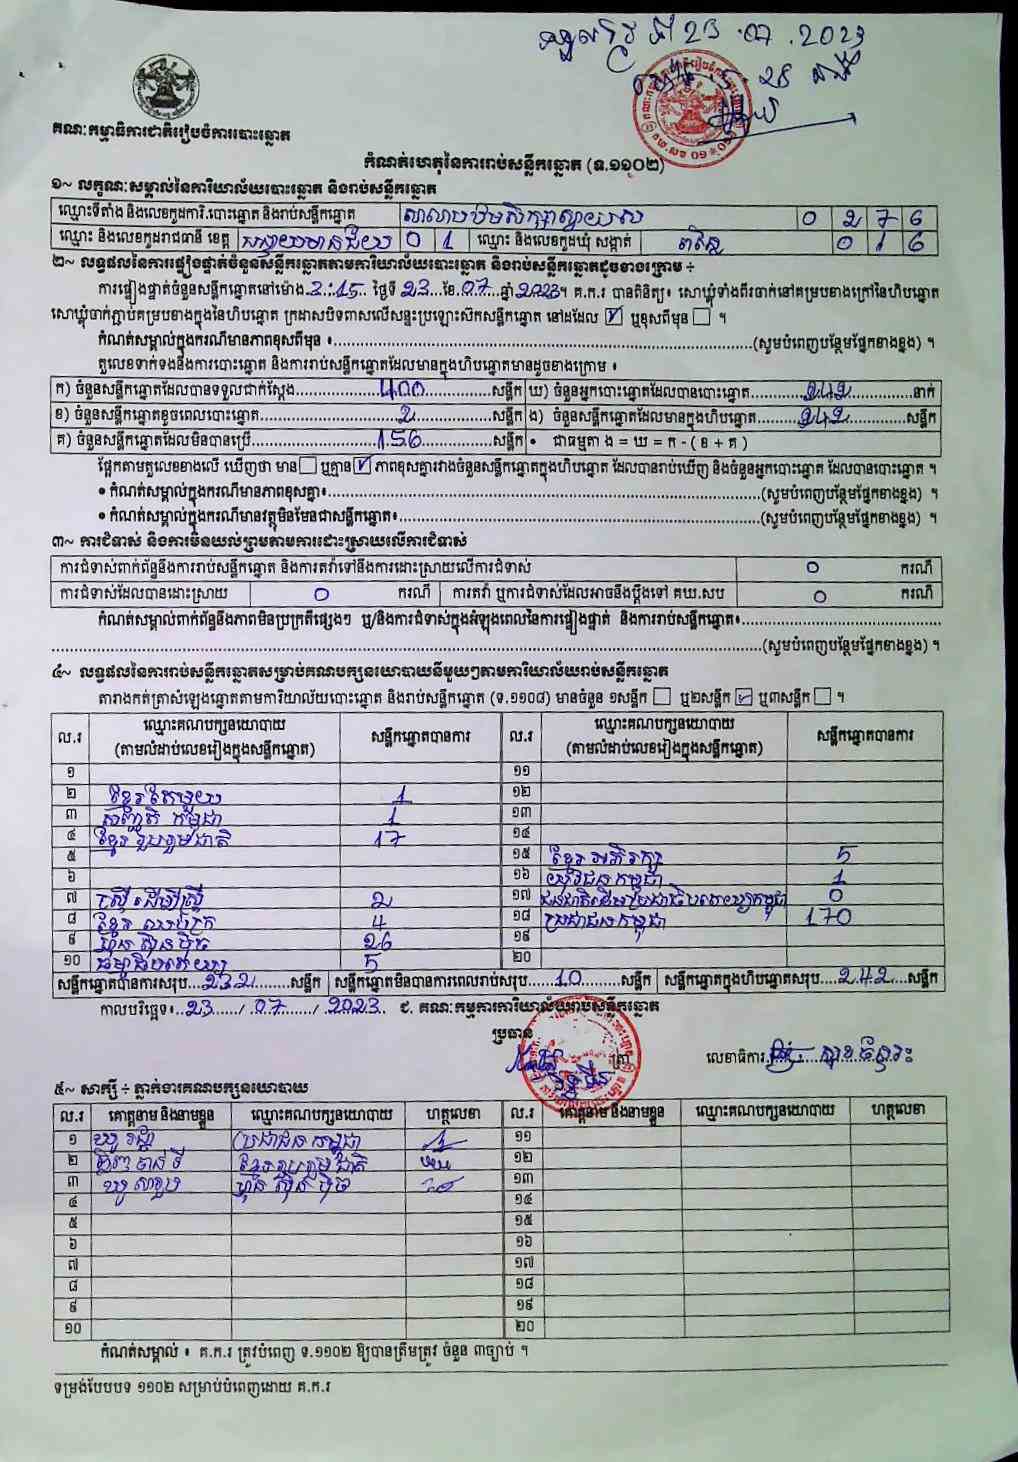 ទទួលថ្ងៃទី 23 .07 . 2023
គណៈកម្មាធិការជាតិរៀបចំការបោះឆ្នោត
កំណត់ហេតុនៃការរាប់សន្លឹកឆ្នោត (ទ.១១០២)
១~ លក្ខណៈសម្គាល់នៃការិយាល័យបោះឆ្នោត និងរាប់សន្លឹកឆ្នោត
ឈ្មោះទីតាំង និងលេខកូដការិ.បោះឆ្នោត និងរាប់សន្លឹកឆ្នោត សាលាបឋមសិក្សាស្វាយស 0 2 7 6
ឈ្មោះ និងលេខកូដរាជធានី ខេត្ត បន្ទាយមានជ័យ 0 1 ឈ្មោះ និងលេខកូដឃុំ សង្កាត់ 0 1 6
២~ លទ្ធផលនៃការផ្ទៀងផ្ទាត់ចំនួនសន្លឹកឆ្នោតតាមការិយាល័យបោះឆ្នោត និងរាប់សន្លឹកឆ្នោតដូចខាងក្រោម ÷
ការផ្ទៀងផ្ទាត់ចំនួនសន្លឹកឆ្នោតនៅម៉ោង 3:15 ថ្ងៃទី 23 ខែ 07 ឆ្នាំ 2023 ។ គ.ក.រ បានពិនិត្យ៖ សោឃ្លុំទាំងពីរចាក់នៅគម្របខាងក្រៅនៃហិបឆ្នោត
សោឃ្លុំចាក់ភ្ជាប់គម្របខាងក្នុងនៃហិបឆ្នោត ក្រដាសបិទពាសលើសន្ទះប្រឡោះស៊កសន្លឹកឆ្នោត នៅដដែល ☑ ឬខុសពីមុន ☐ ។
កំណត់សម្គាល់ក្នុងករណីមានភាពខុសពីមុន ៖ (សូមបំពេញបន្ថែមផ្នែកខាងខ្នង) ។
តួលេខទាក់ទងនឹងការបោះឆ្នោត និងការរាប់សន្លឹកឆ្នោតដែលមានក្នុងហិបឆ្នោតមានដូចខាងក្រោម ៖
ក) ចំនួនសន្លឹកឆ្នោតដែលបានទទួលជាក់ស្តែង 400 សន្លឹក ឃ) ចំនួនអ្នកបោះឆ្នោតដែលបានបោះឆ្នោត 242 នាក់
ខ) ចំនួនសន្លឹកឆ្នោតខូចពេលបោះឆ្នោត 2 សន្លឹក ង) ចំនួនសន្លឹកឆ្នោតដែលមានក្នុងហិបឆ្នោត 242 សន្លឹក
គ) ចំនួនសន្លឹកឆ្នោតដែលមិនបានប្រើ 156 សន្លឹក • ជាធម្មតា ង = ឃ = ក - ( ខ + គ )
ផ្អែកតាមតួលេខខាងលើ ឃើញថា មាន ☐ ឬគ្មាន ☑ ភាពខុសគ្នារវាងចំនួនសន្លឹកឆ្នោតក្នុងហិបឆ្នោត ដែលបានរាប់ឃើញ និងចំនួនអ្នកបោះឆ្នោត ដែលបានបោះឆ្នោត ។
• កំណត់សម្គាល់ក្នុងករណីមានភាពខុសគ្នា៖ (សូមបំពេញបន្ថែមផ្នែកខាងខ្នង) ។
• កំណត់សម្គាល់ក្នុងករណីមានវត្ថុមិនមែនជាសន្លឹកឆ្នោត៖ (សូមបំពេញបន្ថែមផ្នែកខាងខ្នង) ។
៣~ ការជំទាស់ និងការមិនយល់ព្រមតាមការដោះស្រាយលើការជំទាស់
ការជំទាស់ពាក់ព័ន្ធនឹងការរាប់សន្លឹកឆ្នោត និងការតវ៉ាទៅនឹងការដោះស្រាយលើការជំទាស់ 0 ករណី
ការជំទាស់ដែលបានដោះស្រាយ 0 ករណី ការតវ៉ា ឬការជំទាស់ដែលអាចនឹងប្តឹងទៅ គឃ.សប 0 ករណី
កំណត់សម្គាល់ពាក់ព័ន្ធនឹងភាពមិនប្រក្រតីផ្សេងៗ ឬ/និងការជំទាស់ក្នុងអំឡុងពេលនៃការផ្ទៀងផ្ទាត់ និងការរាប់សន្លឹកឆ្នោត៖
(សូមបំពេញបន្ថែមផ្នែកខាងខ្នង) ។
៤~ លទ្ធផលនៃការរាប់សន្លឹកឆ្នោតសម្រាប់គណបក្សនយោបាយនីមួយៗតាមការិយាល័យរាប់សន្លឹកឆ្នោត
តារាងកត់ត្រាសំឡេងឆ្នោតតាមការិយាល័យបោះឆ្នោត និងរាប់សន្លឹកឆ្នោត (ទ.១១០៨) មានចំនួន ១សន្លឹក ☐ ឬ២សន្លឹក ☑ ឬ៣សន្លឹក ☐ ។
ល.រ ឈ្មោះគណបក្សនយោបាយ (តាមលំដាប់លេខរៀងក្នុងសន្លឹកឆ្នោត) សន្លឹកឆ្នោតបានការ ល.រ ឈ្មោះគណបក្សនយោបាយ (តាមលំដាប់លេខរៀងក្នុងសន្លឹកឆ្នោត) សន្លឹកឆ្នោតបានការ
១ ១១
២ ខ្មែរតែមួយ 1 ១២
៣ សញ្ជាតិ កម្ពុជា 1 ១៣
៤ ខ្មែរ រួបរួមជាតិ 17 ១៤
៥ ១៥ ខ្មែរ អភិរក្ស 5
៦ ១៦ យុវជនកម្ពុជា 1
៧ ស្ត្រី ដើម្បីស្ត្រី 2 ១៧ ជនជាតិដើមប្រជាធិបតេយ្យកម្ពុជា 0
៨ ខ្មែរ ឈប់ក្រ 4 ១៨ ប្រជាជនកម្ពុជា 170
៩ ហ៊្វុនស៊ិនប៉ិច 26 ១៩
១០ ធម្មាធិបតេយ្យ 5 ២០
សន្លឹកឆ្នោតបានការសរុប 232 សន្លឹក សន្លឹកឆ្នោតមិនបានការពេលរាប់សរុប 10 សន្លឹក សន្លឹកឆ្នោតក្នុងហិបឆ្នោតសរុប 242 សន្លឹក
កាលបរិច្ឆេទ៖ 23 / 07 / 2023 ជ. គណៈកម្មការការិយាល័យរាប់សន្លឹកឆ្នោត
ប្រធាន
លេខាធិការ
៥~ សាក្សី ÷ ភ្នាក់ងារគណបក្សនយោបាយ
ល.រ គោត្តនាម និងនាមខ្លួន ឈ្មោះគណបក្សនយោបាយ ហត្ថលេខា ល.រ គោត្តនាម និងនាមខ្លួន ឈ្មោះគណបក្សនយោបាយ ហត្ថលេខា
១ ប្រជាជន កម្ពុជា ១១
២ ខ្មែររួបរួមជាតិ ១២
៣ ហ៊្វុន ស៊ិន ប៉ិច ១៣
៤ ១៤
៥ ១៥
៦ ១៦
៧ ១៧
៨ ១៨
៩ ១៩
១០ ២០
កំណត់សម្គាល់ ៖ គ.ក.រ ត្រូវបំពេញ ទ.១១០២ ឱ្យបានត្រឹមត្រូវ ចំនួន ៣ច្បាប់ ។
ទម្រង់បែបបទ ១១០២ សម្រាប់បំពេញដោយ គ.ក.រ